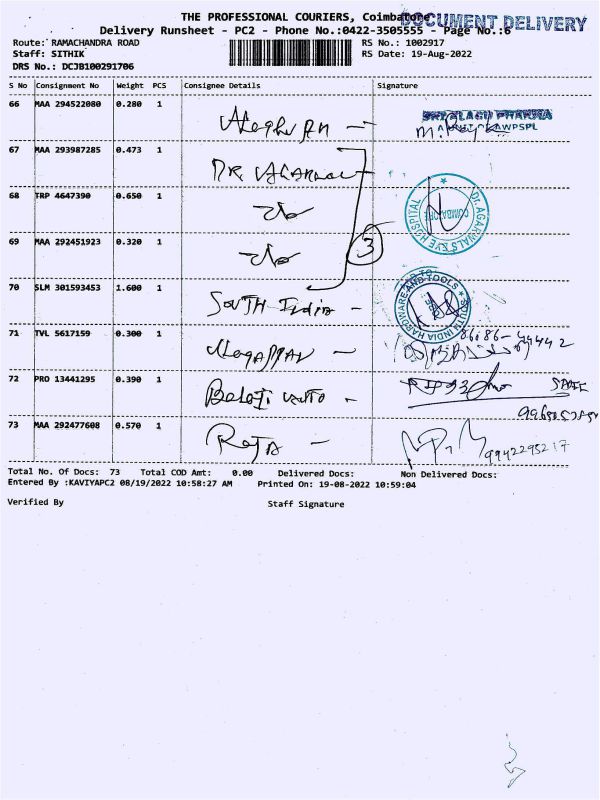 THE PROFESSIONAL COURIERS, Coimbatore
DOCUMENT DELIVERY
Delivery Runsheet - PC2 - Phone No.:0422-3505555 - Page No.:6
Route: RAMACHANDRA ROAD RS No.: 1002917
Staff: SITHIK RS Date: 19-Aug-2022
DRS No.: DCJB100291706
S No Consignment No Weight PCS Consignee Details Signature
66 MAA 294522080 0.280 1
67 MAA 293987285 0.473 1 DR.
68 TRP 4647390 0.650 1
DR. AGARWALS EYE HOSPITAL
COIMBATORE
69 MAA 292451923 0.320 1
3
70 SLM 301593453 1.600 1 South India
SOUTH INDIA HARDWARE AND TOOLS
71 TVL 5617159 0.300 1
72 PRO 13441295 0.390 1 Balaji Auto
73 MAA 292477608 0.570 1 Raja 9942295217
Total No. Of Docs: 73 Total COD Amt: 0.00 Delivered Docs: Non Delivered Docs:
Entered By :KAVIYAPC2 08/19/2022 10:58:27 AM Printed On: 19-08-2022 10:59:04
Verified By Staff Signature